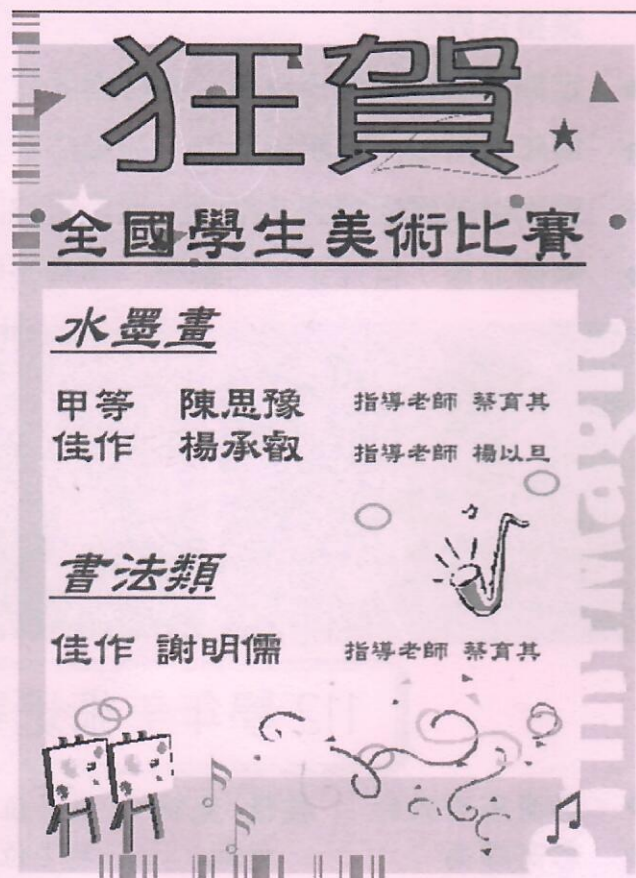 狂賀
全國學生美術比賽
水墨畫
甲等 陳思豫 指導老師 蔡育其
佳作 楊承叡 指導老師 楊以旦
書法類
佳作 謝明儒 指導老師 蔡育其
PrintMagic